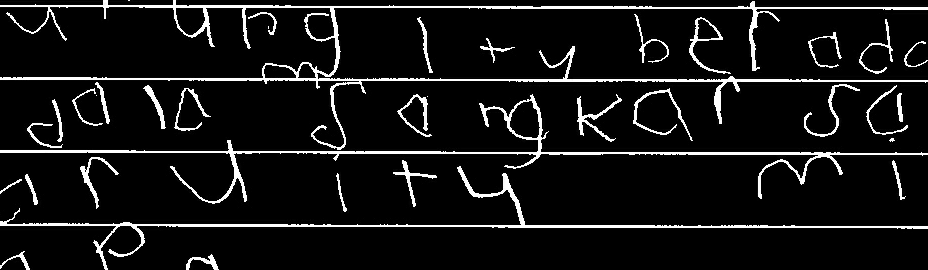 urung itu berada
dalam sangkar sa
aru itu mi
apa